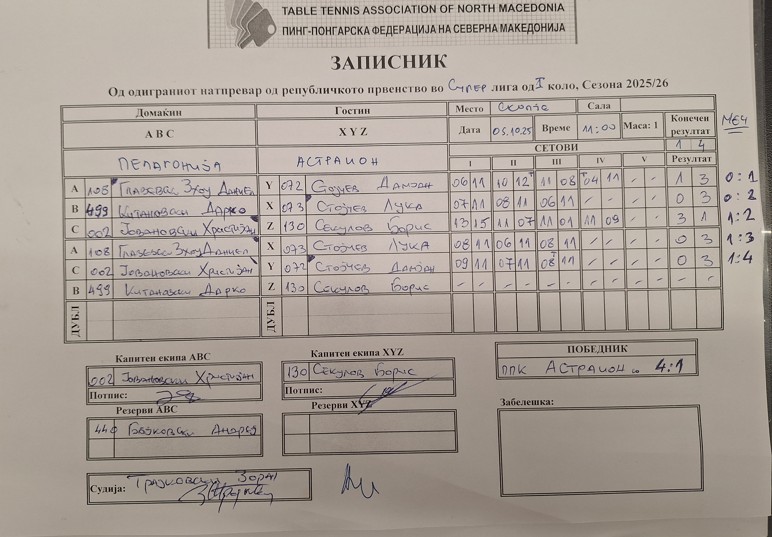 TABLE TENNIS ASSOCIATION OF NORTH MACEDONIA
ПИНГ-ПОНГАРСКА ФЕДЕРАЦИЈА НА СЕВЕРНА МАКЕДОНИЈА
ЗАПИСНИК
Од одиграниот натпревар од републичкото првенство во Супер лига од I коло, Сезона 2025/26
Домаќин Гостин Место Скопје Сала Конечен резултат МЕЧ
A B C X Y Z Дата 05.10.25 Време 11:00 Маса: 1
СЕТОВИ 1 4
ПЕЛАГОНИЈА АСТРАИОН I II III IV V Резултат
A 108 Y 072 Стојчев Дамјан 06 11 10 12 11 08 04 11 - - 1 3 0:1
B 499 Китановски Дарко X 073 Стојчев ЛУКА 07 11 08 11 06 11 - - - - 0 3 0:2
C 002 Јовановски Христијан Z 130 Секулов Борис 13 15 11 07 11 01 11 09 - - 3 1 1:2
A 108 X 073 Стојчев ЛУКА 08 11 06 11 08 11 - - - - 0 3 1:3
C 002 Јовановски Христијан Y 072 Стојчев Дамјан 09 11 07 11 08 11 - - - - 0 3 1:4
B 499 Китановски Дарко Z 130 Секулов Борис - - - - - - - - - - - -
ДУБЛ ДУБЛ
Капитен екипа ABC Капитен екипа XYZ ПОБЕДНИК
002 Јовановски Христијан 130 Секулов Борис ППК АСТРАИОН 4:1
Потпис: Потпис:
Резерви ABC Резерви XYZ Забелешка:
Андреј
Судија: Трајковски Зоран